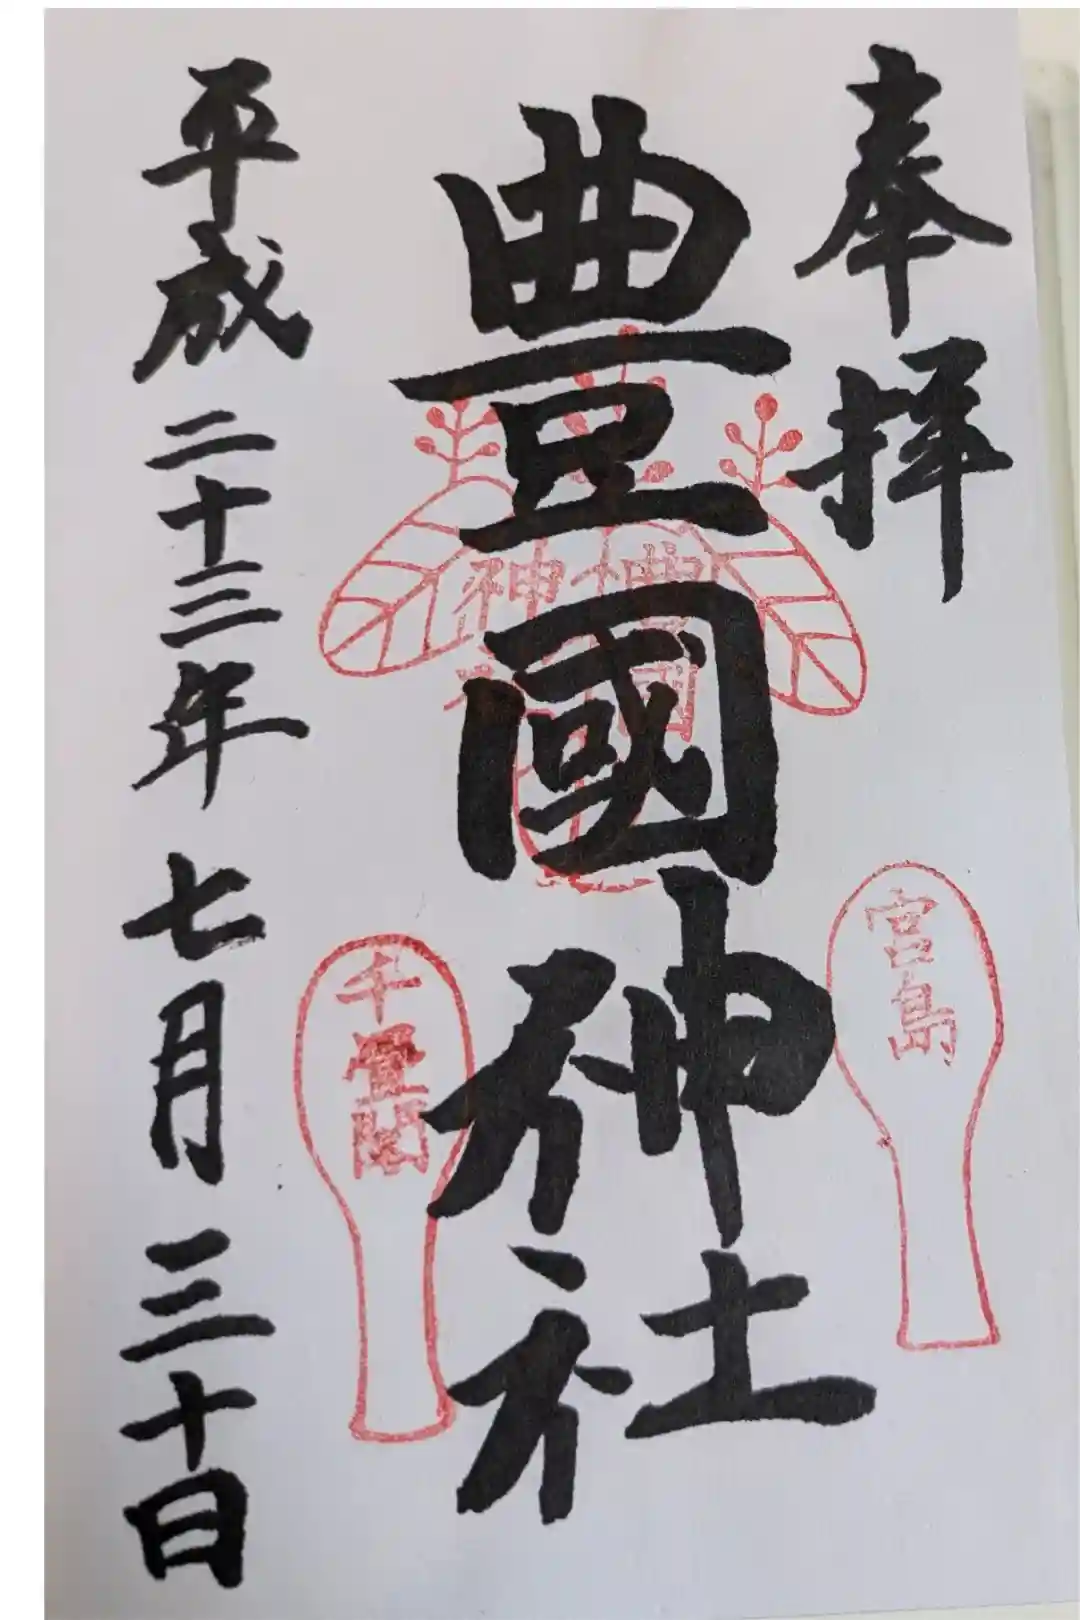 奉拝
宮島
豊國神社
千畳閣
平成二十三年七月三十日